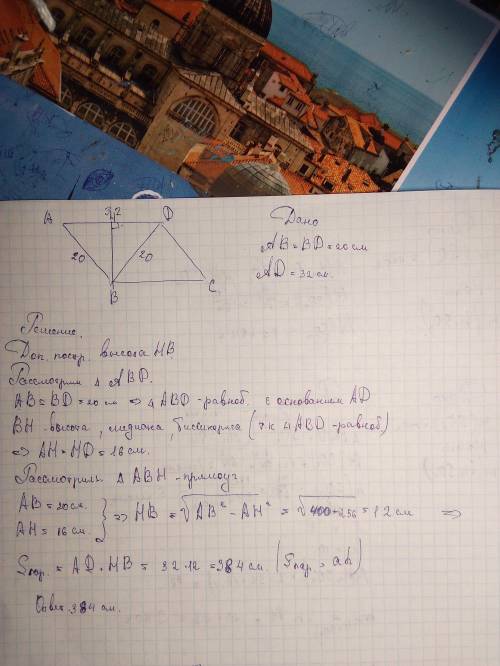 A 32 D
20 20
B C
Дано
AB = BD = 20 см
AD = 32 см.
Решение.
Доп. постр. высота HB.
Рассмотрим Δ ABD.
AB = BD = 20 см ⇒ Δ ABD - равноб. с основанием AD
BH - высота, медиана, биссектриса (т.к Δ ABD - равноб)
⇒ AH = HD = 16 см.
Рассмотрим Δ ABH - прямоуг
AB = 20 см.
AH = 16 см.
} ⇒ HB = √AB² - AH² = √400-256 = 12 см ⇒
Sпар. = AD · HB = 32·12 = 384 см. (Sпар. = ah)
Ответ: 384 см.